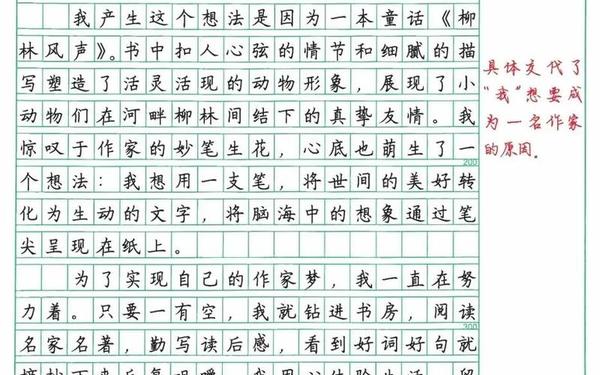 我产生这个想法是因为一本童话《柳
林风声》。书中扣人心弦的情节和细腻的描
写塑造了活灵活现的动物形象，展现了小
动物们在河畔柳林间结下的真挚友情。我
惊叹于作家的妙笔生花，心底也萌生了一
200
个想法：我想用一支笔，将世间的美好转
化为生动的文字，将脑海中的想象通过笔
尖呈现在纸上。
为了实现自己的作家梦，我一直在努
力着。只要一有空，我就钻进书房，阅读
300
名家名著，勤写读后感，看到好词好句就
具体交代了
“我”想要成
为一名作家
的原因。